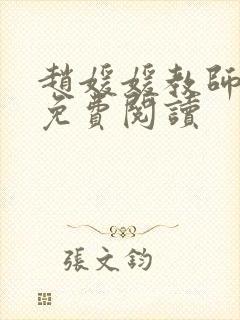 趙媛媛教師
免費閱讀
張文鈞